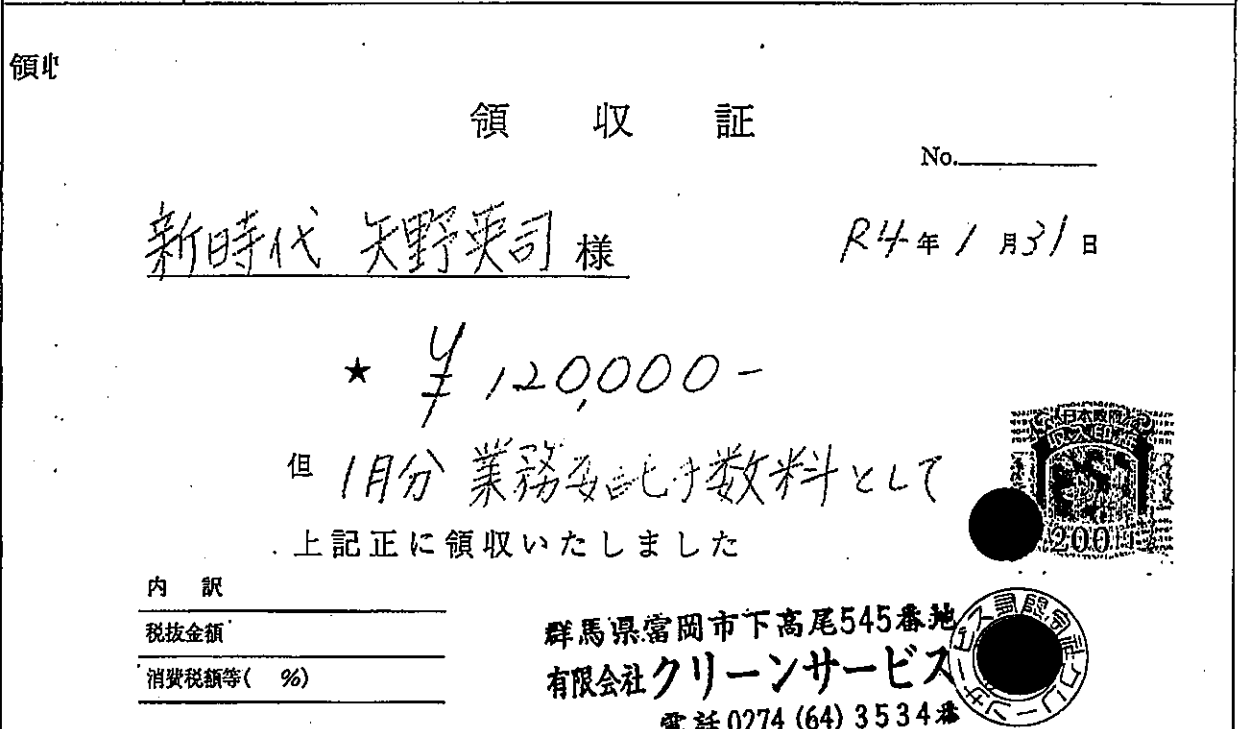 領収
領収証
No.
新時代 矢野英司 様
R4年1月31日
★ ¥120,000-
但 1月分 業務委託手数料として
上記正に領収いたしました
日本政府
収入印紙
200円
内訳
税抜金額
消費税額等( %)
群馬県富岡市下高尾545番地
有限会社クリーンサービス
電話0274(64)3534番
有限会社クリーンサービス